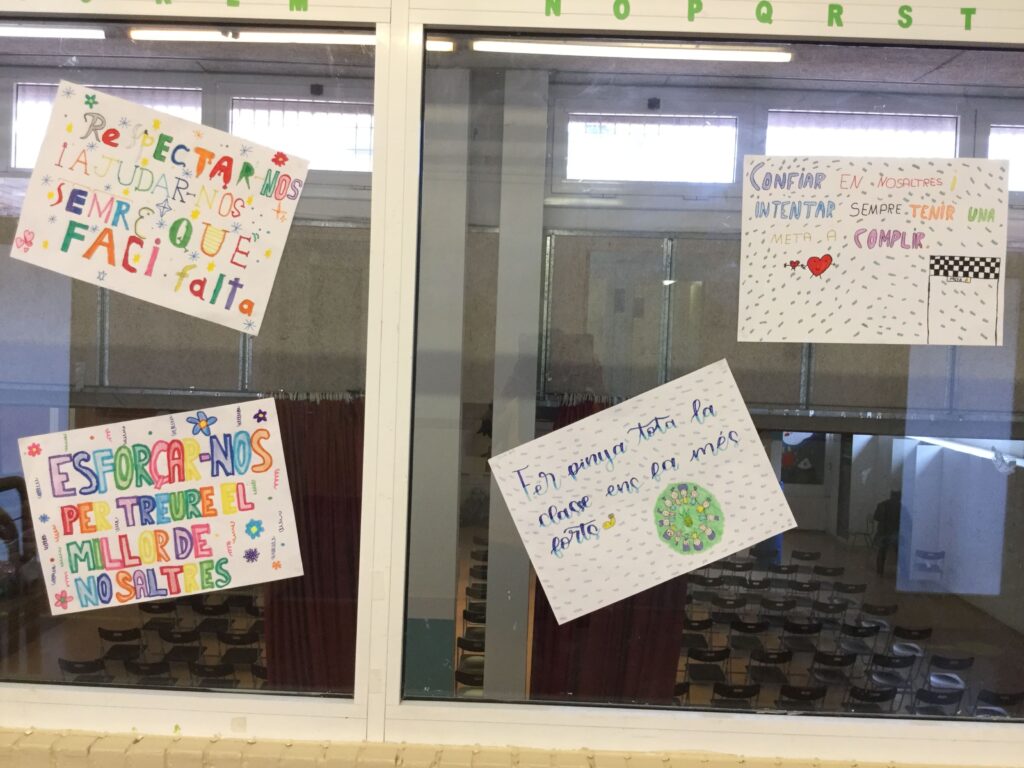 R E M
N O P Q R S T
ReSPECTAR-NOS
I AJUDAR-NOS
SEMRE QUE
FACI falta
CONFIAR EN NOSALTRES I
INTENTAR SEMPRE TENIR UNA
META A COMPLIR.
ESFORÇAR-NOS
PER TREURE EL
MILLOR DE
NOSALTRES
Fer pinya tota la
classe ens fa més
forts